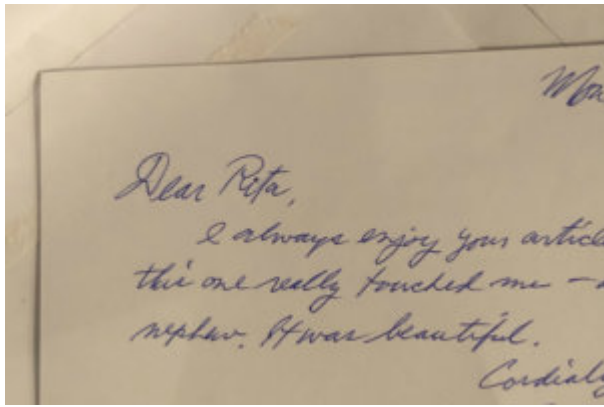 Dear Rita,
I always enjoy your article
this one really touched me –
nephew. It was beautiful.
Cordialy